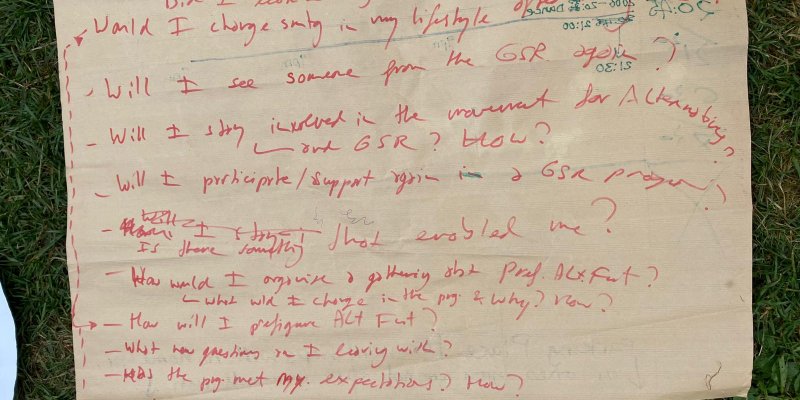 Did I
Would I change smtg in my lifestyle
- Will I see someone from the GSR again?
- Will I stay involved in the movement for Alternatives?
and GSR? How?
- Will I participate/support again in a GSR program?
Is there something that enabled me?
- How would I organise a gathering abt Pref. Alt. Fut?
what wld I change in the prg. & why? How?
- How will I prefigure Alt Fut?
- What new questions am I leaving with?
- Has the prg. met my expectations? How?
20:45
21:00
21:30